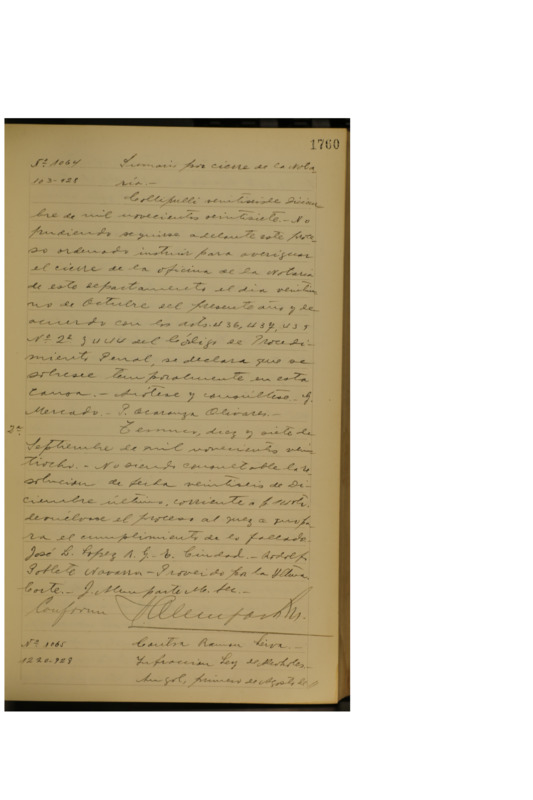 1760
Nº 1064 Sumario por cierre de la Nota
103-928 ría.-
Collipulli veintiseis de Diciem
bre de mil novecientos veintisiete.- No
pudiendo seguirse adelante este proce
so ordenado instruir para averiguar
el cierre de la oficina de la Notaria
de este departamento el dia veintiu
no de Octubre del presente año y de
acuerdo con los arts. 436, 437, 43
Nº 2º y 444 del Código de Procedi
miento Penal, se declara que se
sobresee temporalmente en esta
causa.- Anótese y consúltese.
Mercado.- P. Ocaranza Olivares.-
2ª Temuco, diez y siete de
Septiembre de mil novecientos vein
tiocho.- No siendo consultable la re
solucion de fecha veintiseis de Di
ciembre último, corriente a f
devuélvase el proceso al juez a quo pa
ra el cumplimiento de lo fallado.
José D. Lopez R. G. Ciudad.- Rodolfo
Poblete Navarro.- Proveido por la Iltma
Corte.- J. Sec.-
Conforme
Nº 1065 Contra Ramon Leiva.-
1220-928 Infraccion Ley de Alcoholes.-
Angol, primero de Agosto de